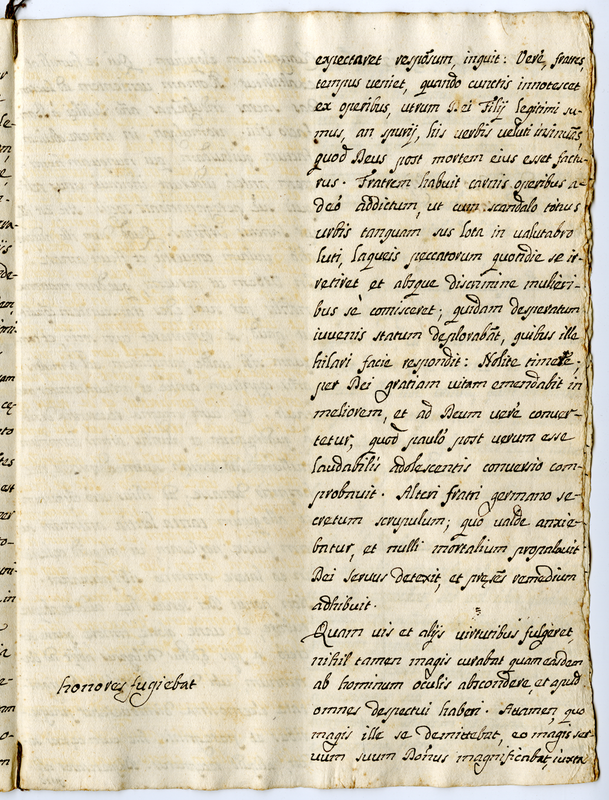 expectaret respõsum, inquit: Verè, fratres,
tempus veniet, quando cunctis innotescet
ex operibus, utrum Dei Filij legitimi su-
mus, an spurij, his verbis veluti insinuãs,
quod Deus post mortem eius esset factu-
rus. Fratrem habuit carnis operibus a-
deò addictum, ut cum scandalo totius
urbis tanquam sus lota in valutabro
luti, laqueis peccatorum quotidie se ir-
retiret et absque discrimine mulieri-
bus sè comisceret; quidam desperatum
iuvenis statum deplorabãt, quibus ille
hilari facie respondit: Nolite timere,
per Dei gratiam vitam emendabit in
meliorem, et ad Deum verè conver-
tetur, quod paulò post verum esse
laudabilis adolescentis conversio com-
probavit. Alteri fratri germano se-
cretum scrupulum; quo valde anxie-
batur, et nulli mortalium propalavit
Dei servus detexit, et pręsẽs remedium
adhibuit.
Quam vis et alijs virtutibus fulgeret,
nihil tamen magis curabat quam easdem
honores fugiebat
ab hominum oculis abscondere, et apud
omnes despectui haberi. Attamen, quo
magis ille se demittebat, eo magis ser
vum suum Dominus magnificabat, iuxta